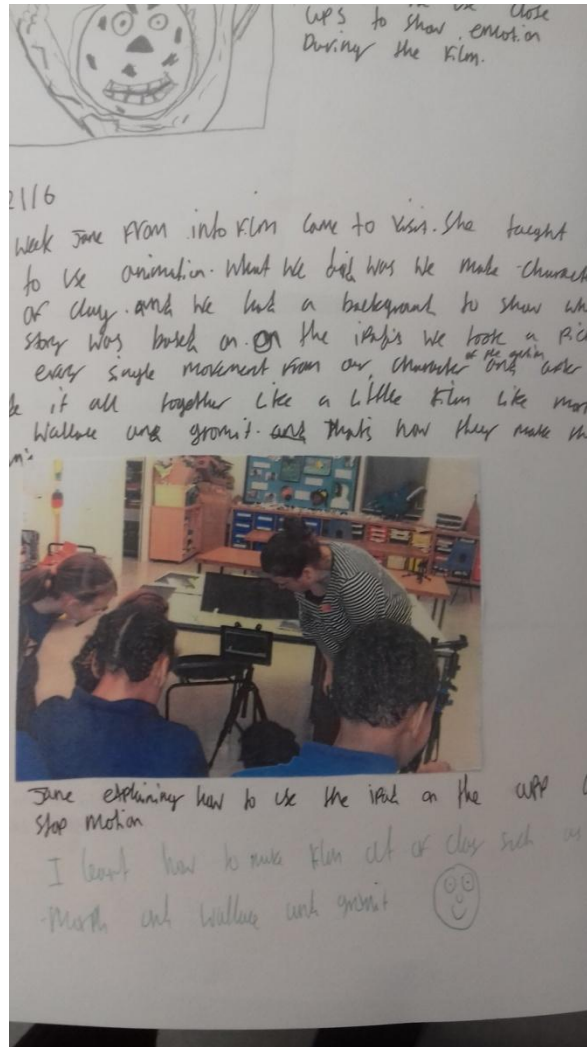 ups to show emotion
During the film.
21/6
Week Jane From into Film Came to visit. She taught
to use animation. What we did was we make Charact
of clay. and we had a background to show wh
story was based on. on the iPads we took a Pic
every single movement From our character and after
of the action
it all together Like a Little film Like mor
Wallace and gromit. and thats how they make th
Jane explaining how to use the iPad on the app
Stop motion
I learnt how to make film out of clay such as
Morph and Wallace and gromit